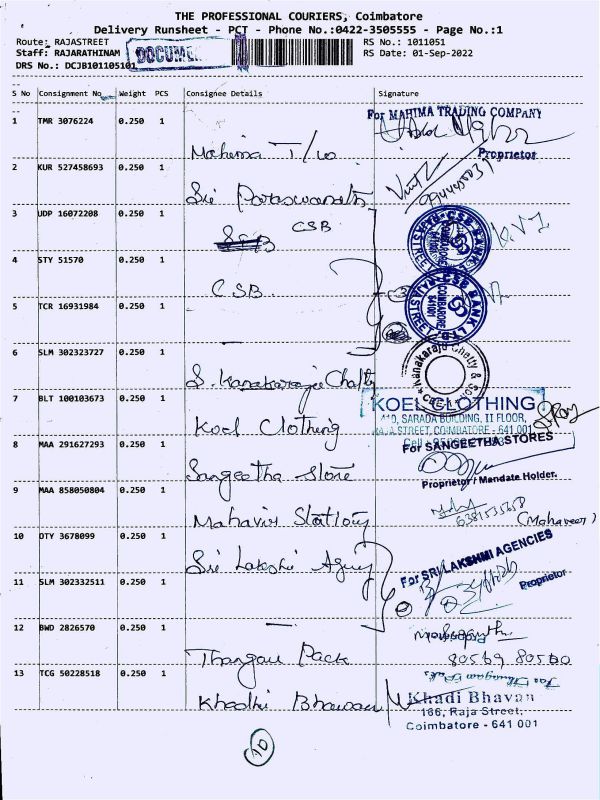 THE PROFESSIONAL COURIERS, Coimbatore
Delivery Runsheet - PCT - Phone No.:0422-3505555 - Page No.:1
Route: RAJASTREET
RS No.: 1011051
Staff: RAJARATHINAM
RS Date: 01-Sep-2022
DRS No.: DCJB101105101
DOCUMENT
S No Consignment No Weight PCS Consignee Details Signature
1 TMR 3076224 0.250 1
For MAHIMA TRADING COMPANY
Proprietor
Mahima T/co
2 KUR 527458693 0.250 1
Sri Paraswanath
3 UDP 16072208 0.250 1
CSB
CSB BANK LTD
RAJASTREET
COIMBATORE
4 STY 51570 0.250 1
CSB
CSB BANK LTD
RAJASTREET
COIMBATORE
641001
5 TCR 16931984 0.250 1
6 SLM 302323727 0.250 1
S. Kanakaraju Chetty
Kanakaraju Chetty & Sons
7 BLT 100103673 0.250 1
KOEL CLOTHING
10, SARADA BUILDING, II FLOOR,
RAJA STREET, COIMBATORE - 641 001
Koel Clothing
8 MAA 291627293 0.250 1
For SANGEETHA STORES
Proprietor / Mandate Holder.
Sangeetha Store
9 MAA 858050804 0.250 1
6381535658
(Mahaveer)
Mahavir Stationy
10 OTY 3678099 0.250 1
For SRI LAKSHMI AGENCIES
Proprietor
Sri Lakshi Agency
11 SLM 302332511 0.250 1
12 BWD 2826570 0.250 1
80569 80560
Thangam Pack
13 TCG 50228518 0.250 1
Khadhi Bhavan
Khadi Bhavan
186, Raja Street,
Coimbatore - 641 001
10